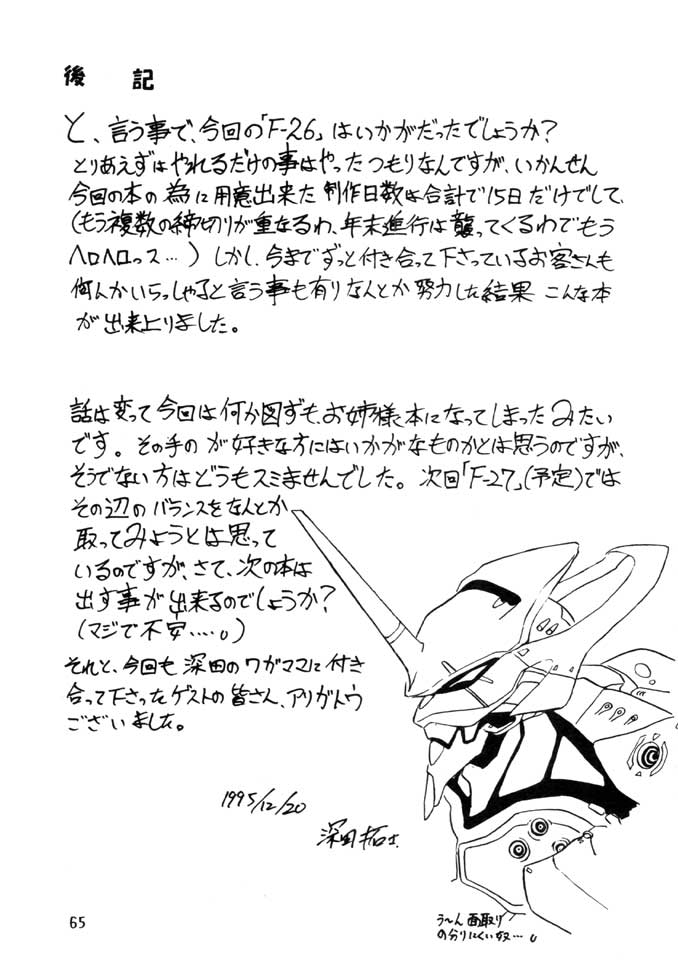 後 記
と、言う事で、今回の「F-26」はいかがだったでしょうか?
とりあえずはやれるだけの事はやったつもりなんですが、いかんせん
今回の本の為に用意出来た制作日数は合計で15日だけでして、
(もう複数の締切りが重なるわ、年末進行は襲ってくるわでもう
ヘロヘロっス…)しかし、今までずっと付き合って下さっているお客さんも
何んかいらっしゃると言う事も有りなんとか努力した結果 こんな本
が出来上りました。
話は変って今回は何か図ずも、お姉様本になってしまったみたい
です。その手の が好きな方にはいかがなものかとは思うのですが、
そうでない方はどうもスミませんでした。次回「F-27」(予定)では
その辺のバランスをなんとか
取ってみようとは思って
いるのですが、さて、次の本は
出す事が出来るのでしょうか?
(マジで不安……。)
それと、今回も深田のワガママに付き
合って下さったゲストの皆さん、アリガトウ
ございました。
1995/12/20
深田拓士
う〜ん面取り
の分りにくい奴…。
65